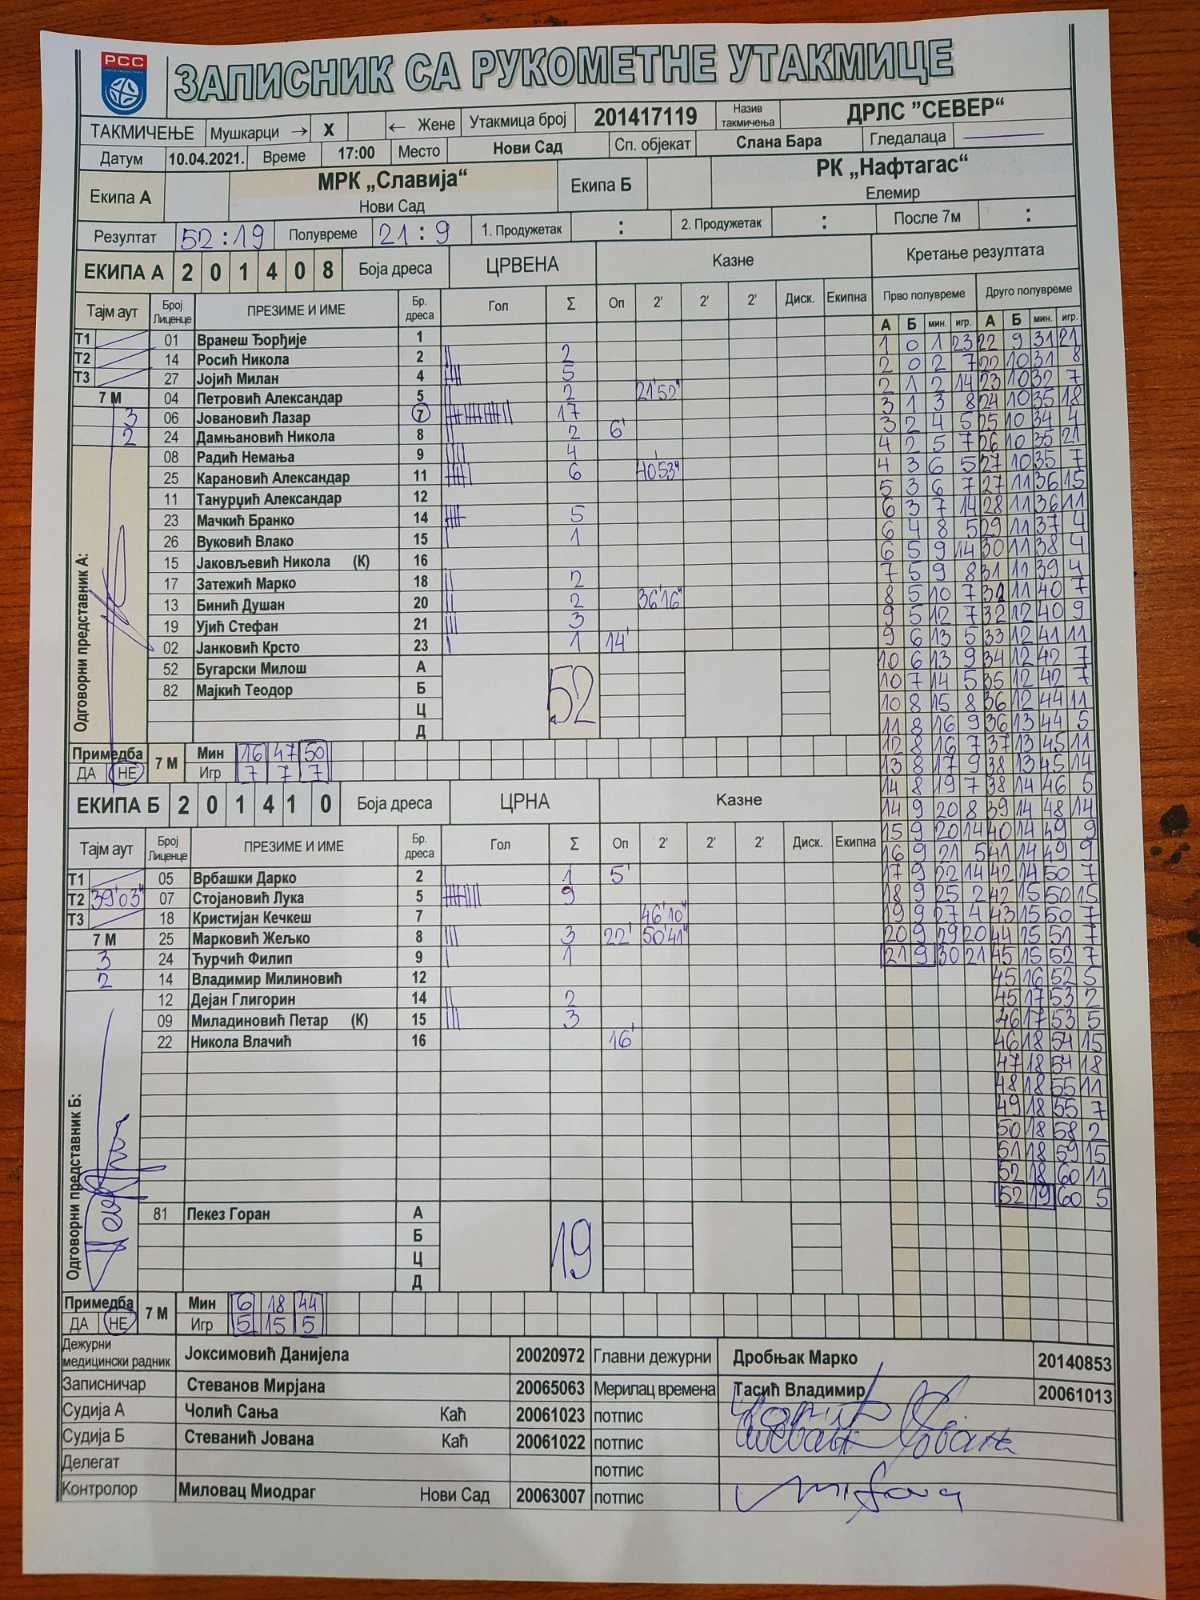 РСС
ЗАПИСНИК СА РУКОМЕТНЕ УТАКМИЦЕ
ТАКМИЧЕЊЕ Мушкарци → X ← Жене Утакмица број 201417119 Назив такмичења ДРЛС "СЕВЕР“
Датум 10.04.2021. Време 17:00 Место Нови Сад Сп. објекат Слана Бара Гледалаца
Екипа А МРК „Славија“ Екипа Б РК „Нафтагас“
Нови Сад Елемир
Резултат 52:19 Полувреме 21:9 1. Продужетак : 2. Продужетак : После 7м :
ЕКИПА А 2 0 1 4 0 8 Боја дреса ЦРВЕНА Казне Кретање резултата
Тајм аут Број Лиценце ПРЕЗИМЕ И ИМЕ Бр. дреса Гол Σ Оп 2' 2' 2' Диск. Екипна Прво полувреме Друго полувреме
А Б мин. игр. А Б мин. игр.
Т1 01 Вранеш Ђорђије 1
Т2 14 Росић Никола 2 2
Т3 27 Јојић Милан 4 5
7 М 04 Петровић Александар 5 2 21'52"
3 06 Јовановић Лазар 7 17
2 24 Дамњановић Никола 8 2 6'
08 Радић Немања 9 4
25 Карановић Александар 11 6 40'53"
11 Танурџић Александар 12
23 Мачкић Бранко 14 5
26 Вуковић Влако 15 1
15 Јаковљевић Никола (К) 16
17 Затежић Марко 18 2
13 Бинић Душан 20 2 36'16"
19 Ујић Стефан 21 3
02 Јанковић Крсто 23 1 14'
52 Бугарски Милош А
82 Мајкић Теодор Б
Ц
Д
52
Одговорни представник А:
Примедба ДА НЕ 7 М Мин 16 47 50
Игр 7 7 7
1 0 1 23
2 0 2 7
2 1 2 14
3 1 3 8
3 2 4 5
4 2 5 7
4 3 6 5
5 3 6 7
6 3 7 14
6 4 8 5
6 5 9 14
7 5 9 8
8 5 10 7
9 5 12 7
9 6 13 5
10 6 13 9
10 7 14 5
10 8 15 8
11 8 16 9
12 8 16 7
13 8 17 9
14 8 19 7
14 9 20 8
15 9 20 14
16 9 21 5
17 9 22 14
18 9 25 2
19 9 27 4
20 9 29 20
21 9 30 21
22 9 31 21
22 10 31 8
23 10 32 7
24 10 35 18
25 10 34 4
26 10 35 21
27 10 35 7
27 11 36 15
28 11 36 11
29 11 37 4
30 11 38 4
31 11 39 4
32 11 40 7
32 12 40 9
33 12 41 11
34 12 42 7
35 12 42 7
36 12 44 11
36 13 44 5
37 13 45 11
38 13 45 14
38 14 46 5
39 14 48 14
40 14 49 9
41 14 49 9
42 14 50 7
42 15 50 15
43 15 50 7
44 15 51 7
45 15 52 7
45 16 52 5
45 17 53 2
46 17 53 5
46 18 54 15
47 18 54 18
48 18 55 11
49 18 55 7
50 18 58 2
51 18 59 15
52 18 60 11
52 19 60 5
ЕКИПА Б 2 0 1 4 1 0 Боја дреса ЦРНА Казне
Тајм аут Број Лиценце ПРЕЗИМЕ И ИМЕ Бр. дреса Гол Σ Оп 2' 2' 2' Диск. Екипна
Т1 05 Врбашки Дарко 2 1 5'
Т2 39'03" 07 Стојановић Лука 5 9
Т3 18 Кристијан Кечкеш 7 46'10"
7 М 25 Марковић Жељко 8 3 22' 50'41"
3 24 Ћурчић Филип 9 1
2 14 Владимир Милиновић 12
12 Дејан Глигорин 14 2
09 Миладиновић Петар (К) 15 3
22 Никола Влачић 16 16'
Одговорни представник Б:
81 Пекез Горан А
Б
Ц
Д
19
Примедба ДА НЕ 7 М Мин 6 18 44
Игр 5 15 5
Дежурни медицински радник Јоксимовић Данијела 20020972 Главни дежурни Дробњак Марко 20140853
Записничар Стеванов Мирјана 20065063 Мерилац времена Тасић Владимир 20061013
Судија А Чолић Сања Каћ 20061023 потпис
Судија Б Стеванић Јована Каћ 20061022 потпис
Делегат потпис
Контролор Миловац Миодраг Нови Сад 20063007 потпис